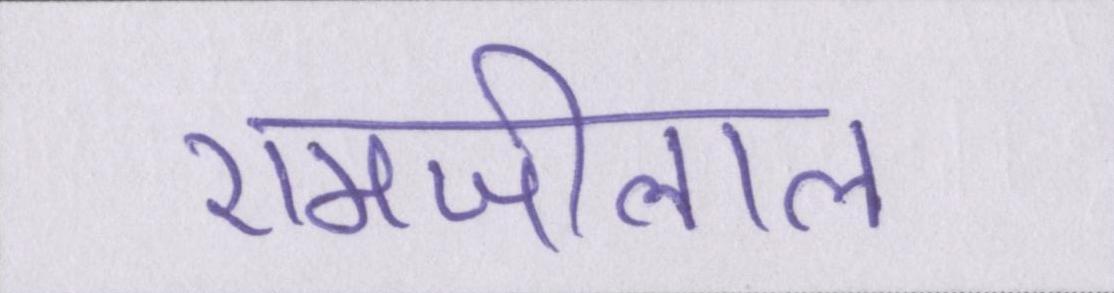 रामजीलाल